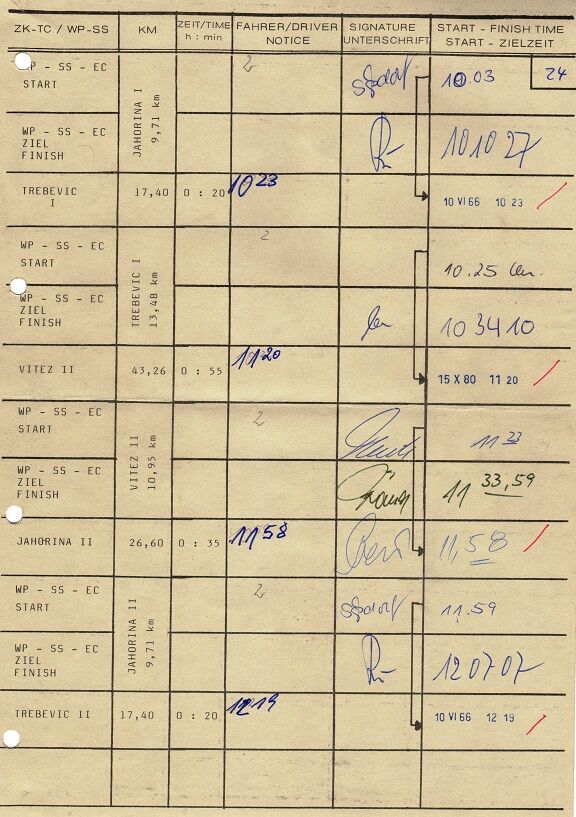 ZK-TC / WP-SS KM ZEIT/TIME FAHRER/DRIVER SIGNATURE START - FINISH TIME
h : min NOTICE UNTERSCHRIFT START - ZIELZEIT
WP - SS - EC
START
2
10.03
24
JAHORINA I
9,71 km
WP - SS - EC
ZIEL
FINISH
10 10 27
TREBEVIC
I
17,40 0 : 20 10 23 10 VI 66 10 23
WP - SS - EC
START
2
10.25
TREBEVIC I
13,48 km
WP - SS - EC
ZIEL
FINISH
10 34 10
VITEZ II 43,26 0 : 55 11 20 15 X 80 11 20
WP - SS - EC
START
2
11 33
VITEZ II
10,95 km
WP - SS - EC
ZIEL
FINISH
11 33,59
JAHORINA II 26,60 0 : 35 11 58 11,58
WP - SS - EC
START
2
11.59
JAHORINA II
9,71 km
WP - SS - EC
ZIEL
FINISH
12 07 07
TREBEVIC II 17,40 0 : 20 12 19 10 VI 66 12 19